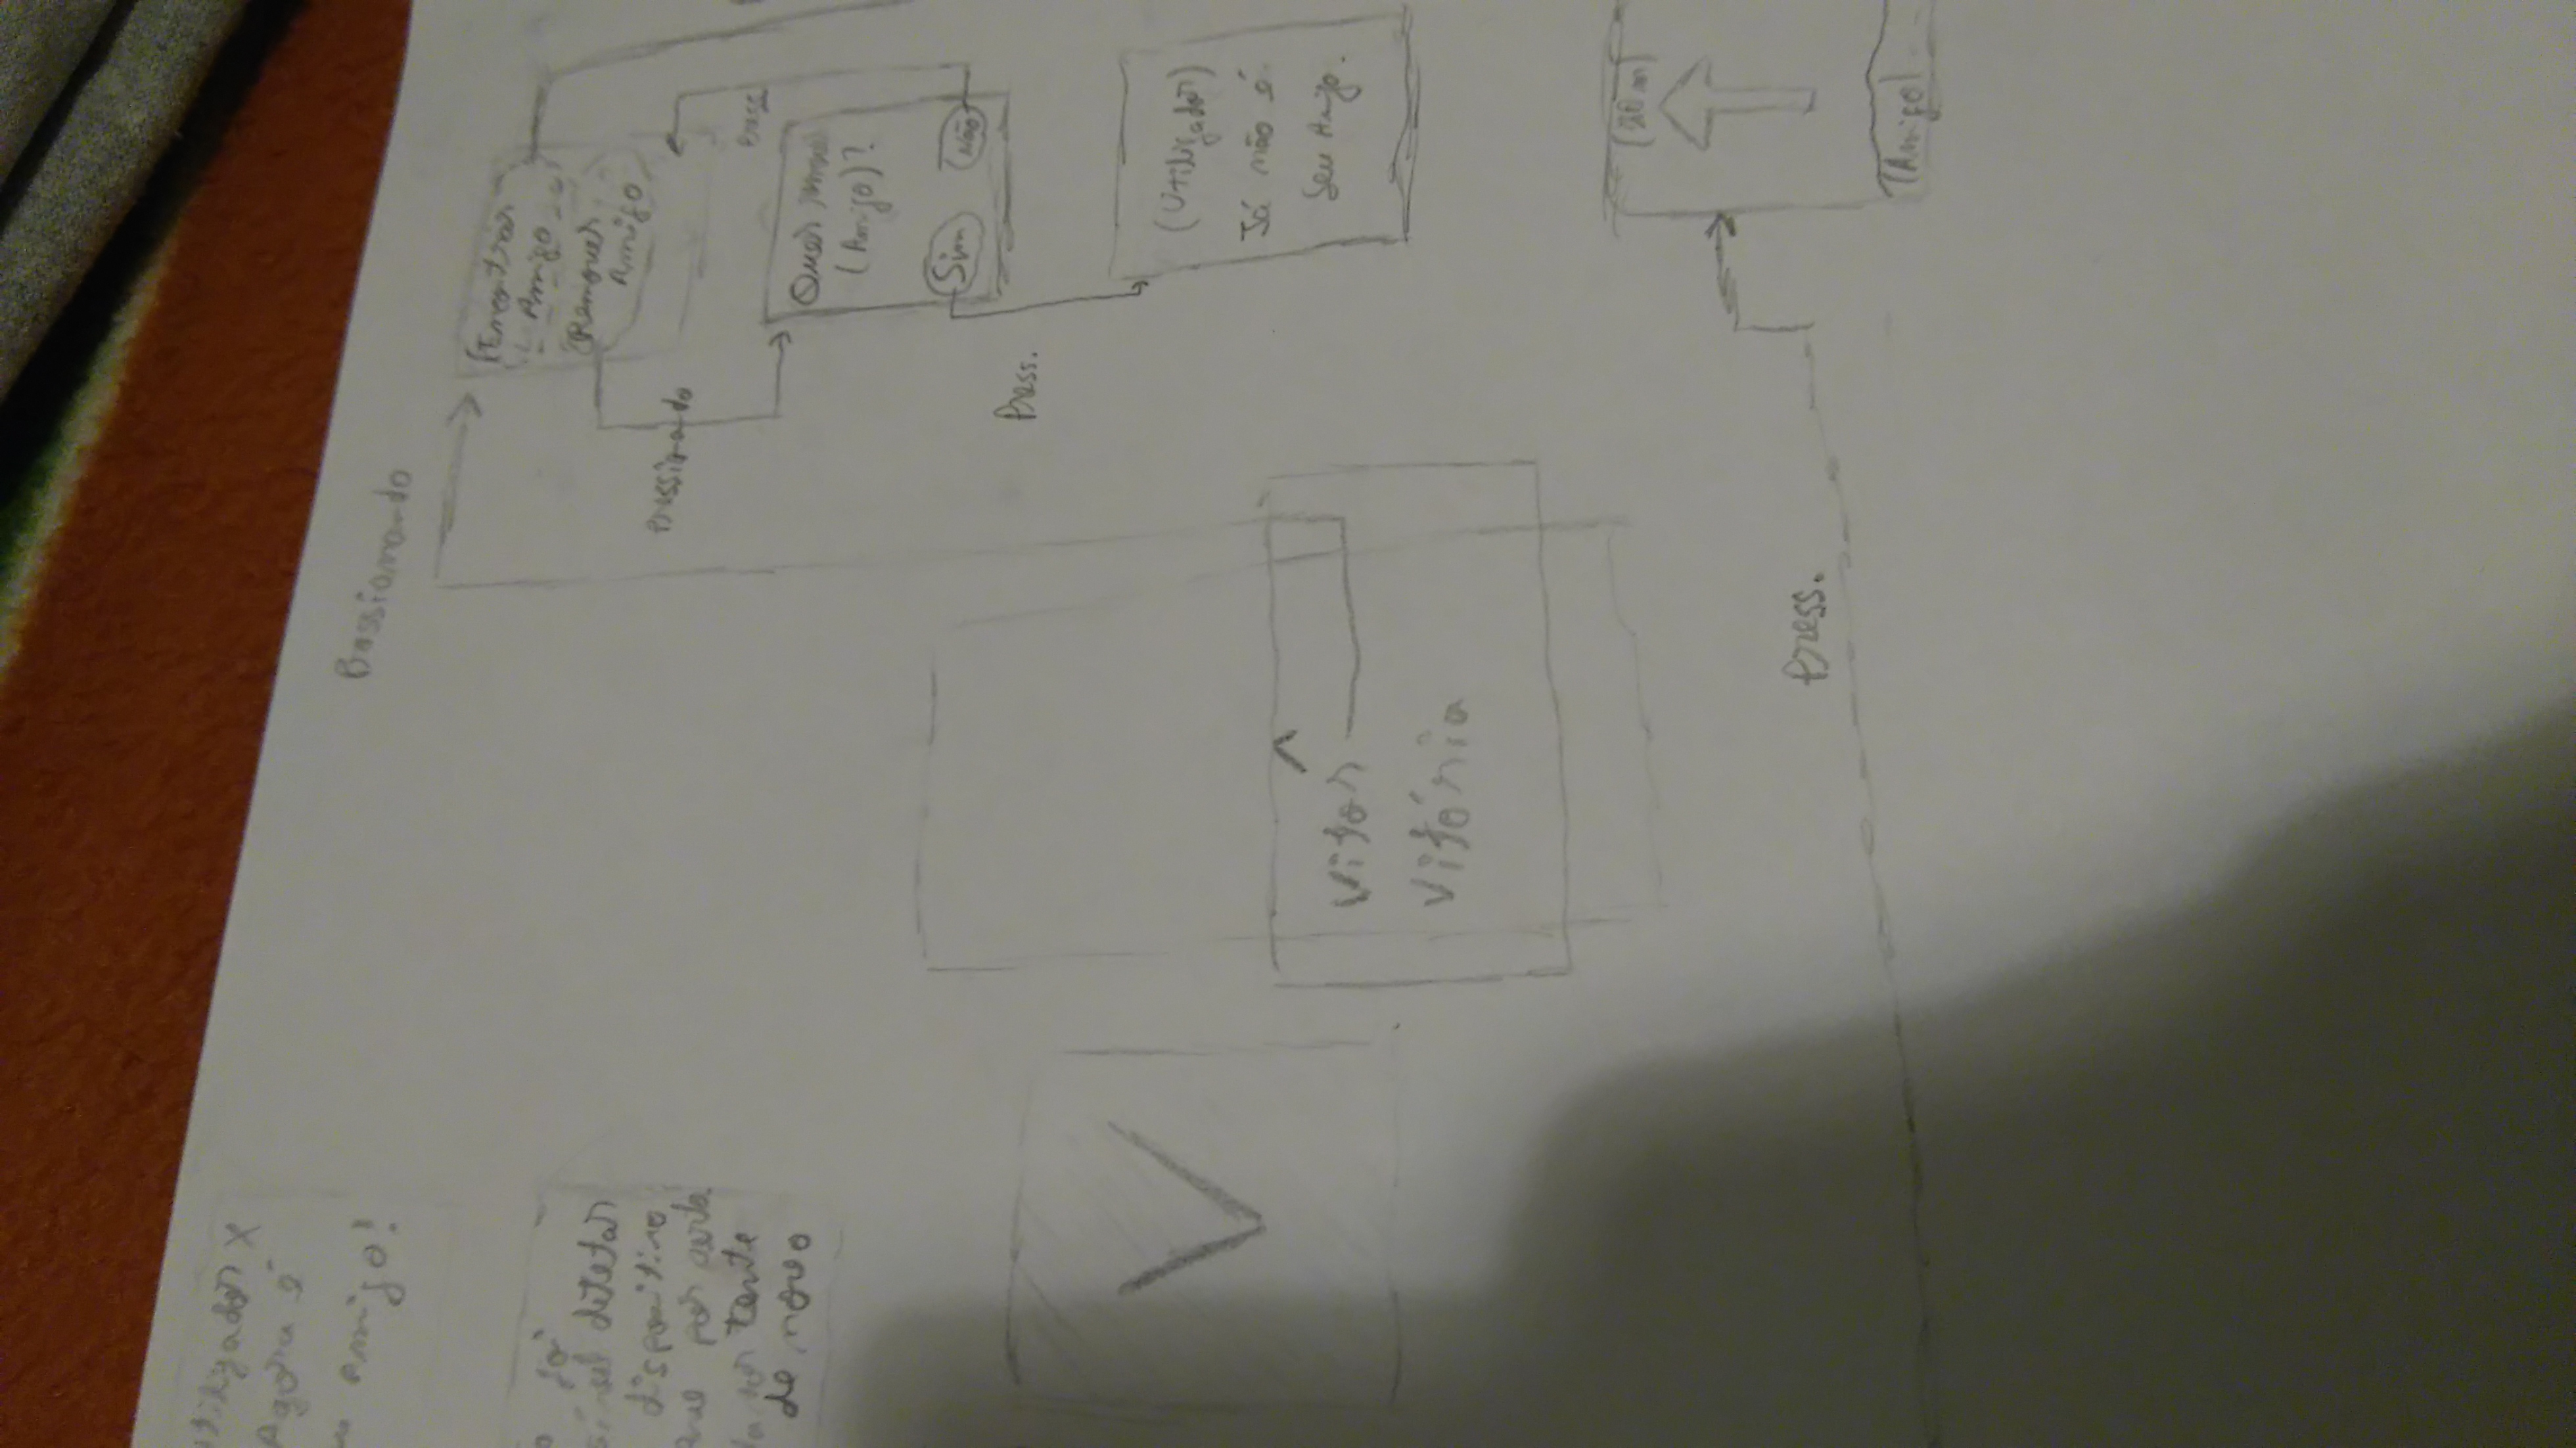 utilizador X
Agora é
amigo!
já
detetar
dispositivo
por certo
tente
de novo
Pressionando
Encontrar
Amigo
Remover
Amigo
Pressionando
Press
Quer
(Amigo)?
Sim
Não
Press.
(Utilizador)
Já não é
Seu Amigo.
V
^
Vitor
Vitória
Press.
(20m)
(Amigo)